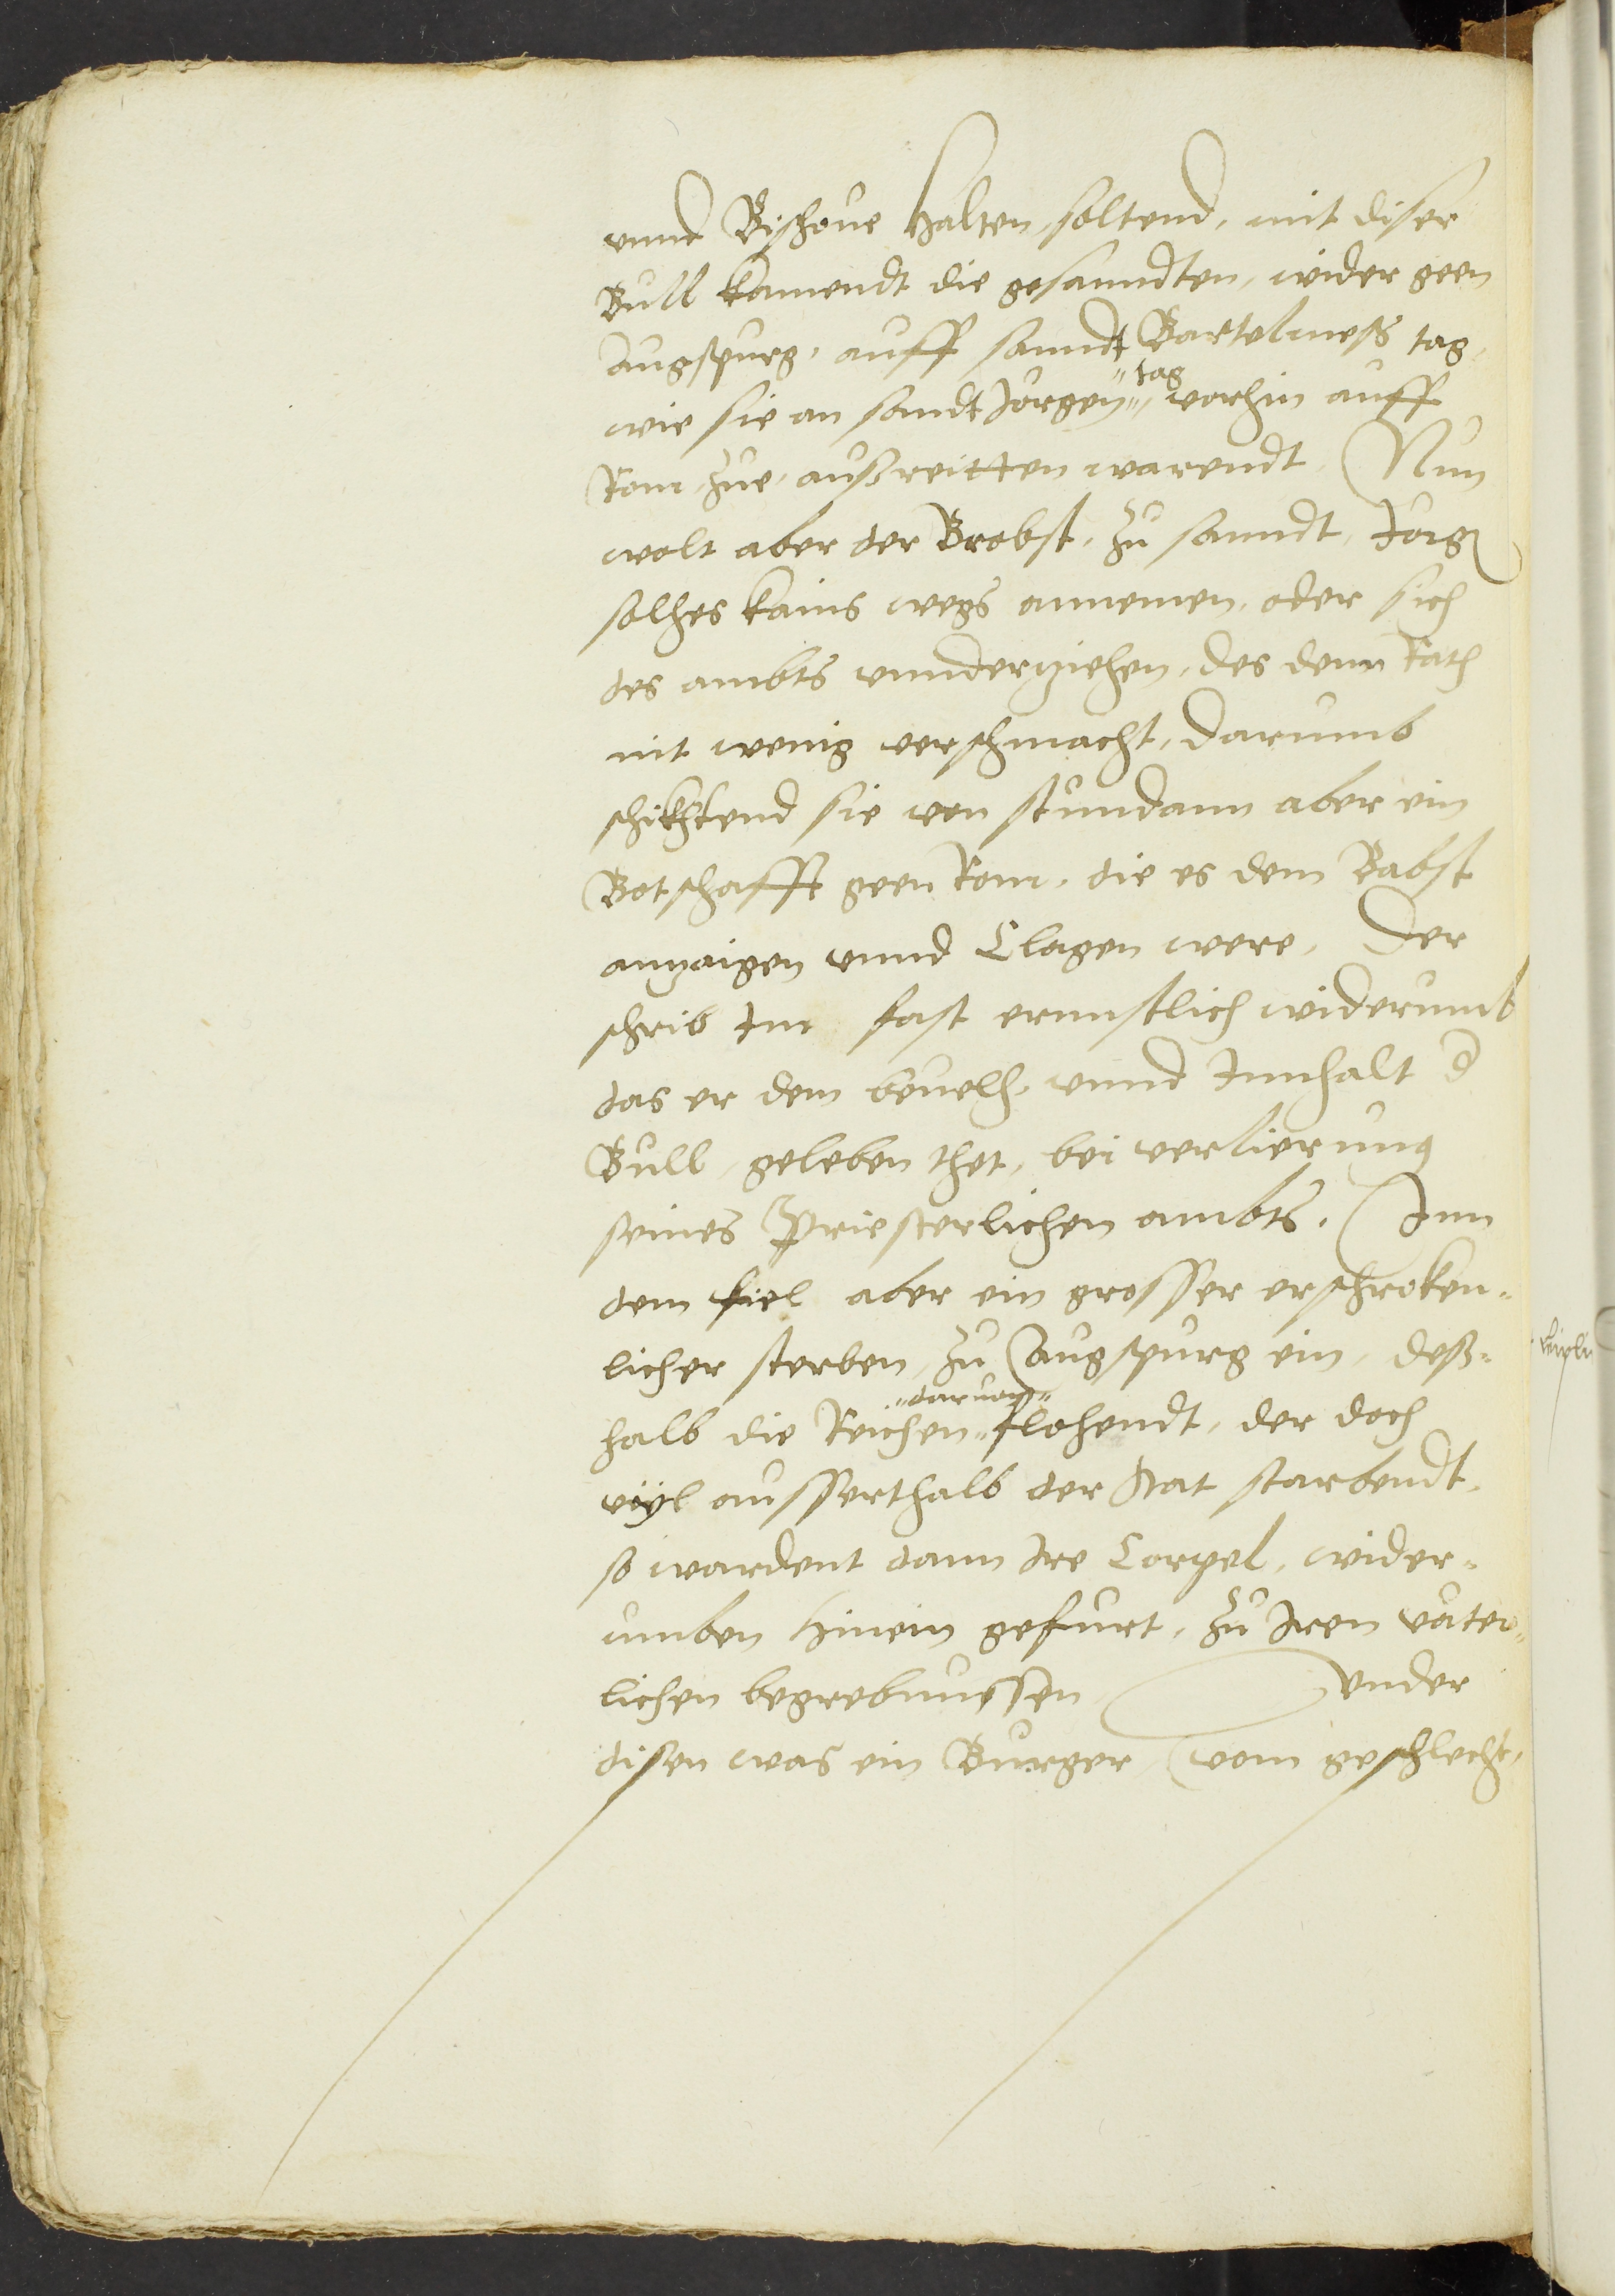 vnnd Bischoue halten soltend, mit diser
Bull kamendt die gesanndten, wider geen
Augspurg, auff sanndt Bartelmeß tag,
wie sie an sandt Jörgen tag vorhin auff
Rom zue, außreitten warendt, Nun
wolt aber der Brobst, zu sanndt, Jorg
solhes kains wegs annemen, oder sich
des ambts vnnderziehen, des dem Rath
nit wenig verschmacht, darumb
schikhtend sie von stundann aber ein
Botschafft geen Rom, die es dem Babst
anzaigen vnnd Clagen were, Der
schrib Im fast ernnstlich widerumb
das er dem beuelh, vnnd Innhalt d
Bull, geleben thet, bei verlierung
seines Priesterlichen ambts. Inn
dem fiel aber ein grosser erschroken-
licher sterben, zu Augspurg ein, deß-
halb die Reichen daruon flohendt, der doch
viyl ausserthalb der stat starbendt,
so wardent dann Ire Corpel, wider-
umben hinein gefurt, zu Iren väter-
lichen begrebnussen, Vnder
disen was ein Burger, vom geschlecht,